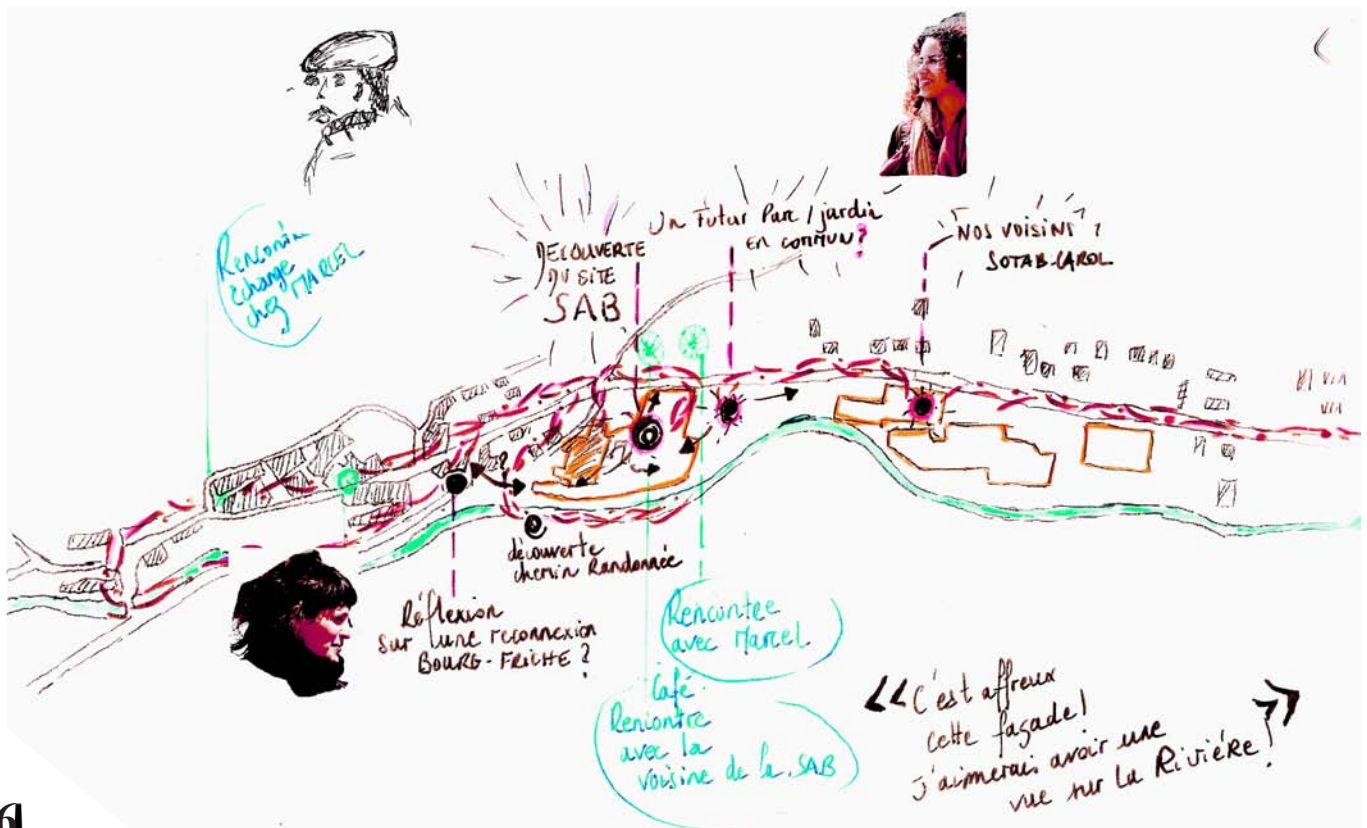 Rencontre
échange
chez MARCEL
DECOUVERTE
DU SITE
SAB
Un Futur Parc / jardin
EN COMMUN ?
NOS VOISINS ?
SOTAB-CAROL
?
découverte
chemin Randonnée
Réflexion
sur une reconnexion
BOURG-FRICHE ?
Rencontre
avec Marcel
Café.
Rencontre
avec la
voisine de la SAB
« C'est affreux
cette façade !
j'aimerais avoir une
vue sur la Rivière ! »